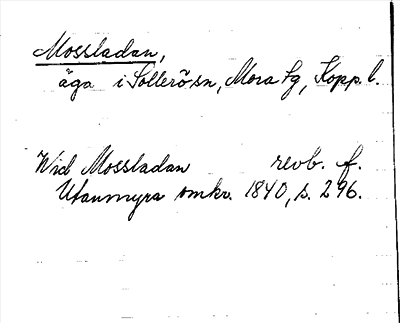 Mossladan,
äga i Sollerö sn, Mora tg, Kopp. l.
Wid Mossladan revb. f.
Utanmyra omkr. 1840, s. 296.